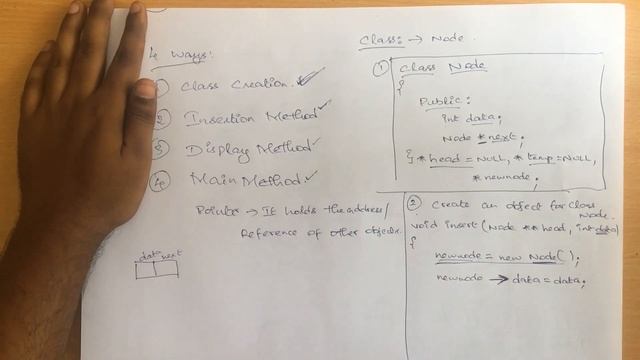 4 Ways:
① Class Creation.
② Insertion Method
③ Display Method
④ Main Method
Pointer → It holds the address/
Reference of other objects.
data next
Class: → Node.
① Class Node
{
Public:
int data;
Node *next;
} * head = NULL, * temp = NULL,
* newnode;
② Create an object for class
Node.
void insert (Node ** head, int data)
{
newnode = new Node( );
newnode → data = data;